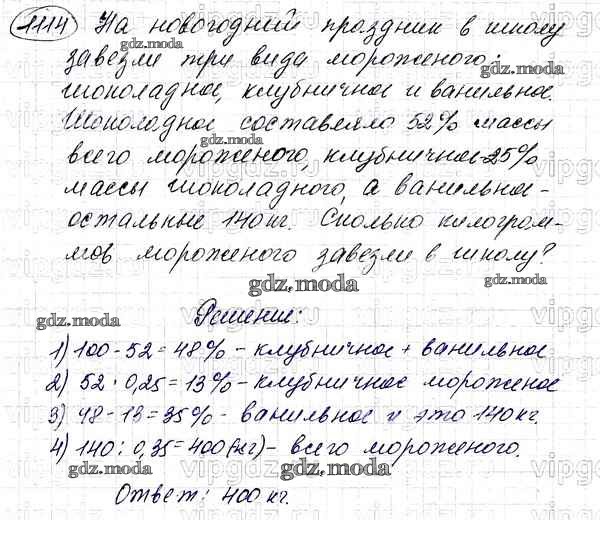 1114 На новогодний праздник в школу
завезли три вида мороженого:
шоколадное, клубничное и ванильное.
Шоколадное составляло 52% массы
всего мороженого, клубничное - 25%
массы шоколадного, а ванильное -
остальные 140 кг. Сколько килограм-
мов мороженого завезли в школу?
gdz.moda
Решение:
1) 100 - 52 = 48% - клубничное + ванильное
2) 52 · 0,25 = 13% - клубничное мороженое
3) 48 - 13 = 35% - ванильное и это 140 кг.
4) 140 : 0,35 = 400 (кг) - всего мороженого.
gdz.moda
Ответ: 400 кг.